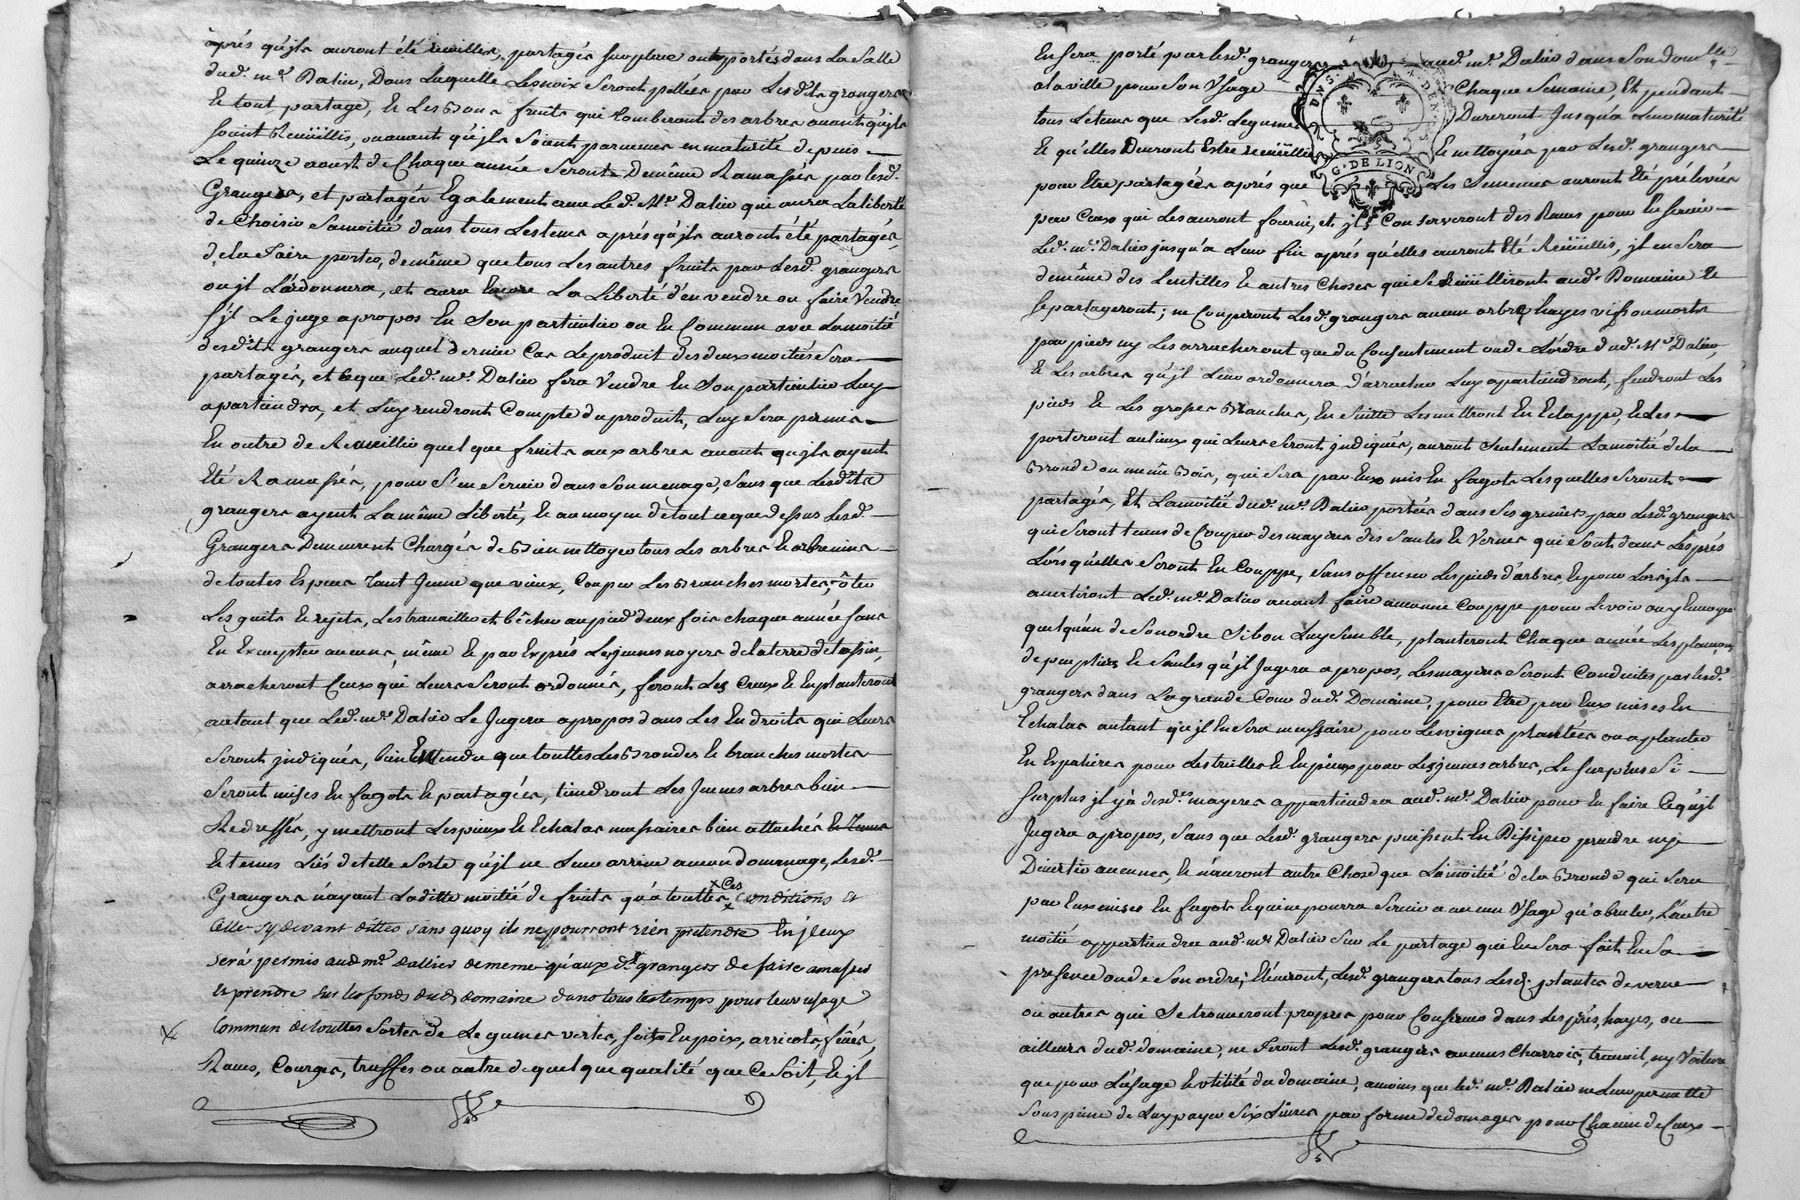 aprés qu'jls auront été ceuillis, partagés sur place ou portés dans La Salle
dud. mr. Dalier, Dans Laquelle Les noix Seront pellées par Lesdits grangers
Le tout partagé, Et Les Bons fruits qui tomberont des arbres avant qu'jls
soient Reuiillis, ou avant qu'jls Soient parvenus en maturité depuis
Le quinze aoust de Chaque année Seront De même Ramassés par lesd.
Grangers, et partagés Egalement avec Led. Mr. Dalier qui aura La liberté
de Choisir Sa moitié dans tous Les tems aprés qu'jls auront été partagés,
de la Faire porter, de même que tous Les autres fruits par Lesd. grangers
ou jl L'ordonnera, et aura Encore La Liberté d'en vendre ou faire Vendre
s'jl Le juge apropos En Son particulier ou En Commun avec La moitié
desdits grangers auquel dernier Cas Le produit des deux moitiés Sera
partagés, et ce que Led. mr. Dalier fera Vendre En Son particulier Luy
apartiendra, et Luy rendront Compte du produit, Luy Sera permis
En outre de Receuillir quelque fruits aux arbres avant qu'jls ayent
Eté Ramassés, pour S'en Servir dans Son menage, Sans que Lesdits
grangers ayent La même Liberté, Et au moyen de tout ce que dessus Lesd.
Grangers Demeurent Chargés de Bien nettoyer tous Les arbres Et arbrenines
de toutes Especes Tant Jeune que vieux, Couper Les Branches mortes, ôter
Les guits Et rejets, Les travailler et bécher au pied deux fois chaque année sans
En Excepter aucuns, même Et par Exprés Les jeunes noyers de la terre de tassin,
arracheront Ceux qui Leurs Seront ordonnés, feront Les Creux Et En planteront
autant que Led. mr. Dalier Le Jugera apropos dans Les Endroits qui Leurs
Seront jndiqués, bien Entendu que touttes Les Brondes Et branches mortes
Seront mises En fagots Et partagées, tiendront Les Jeunes arbres bien
Redressés, y mettront Les pieux Et Echalas necessaires bien attachés
Et tenus Liés de telle Sorte qu'jl ne Leur arrive aucun dommage, Lesd.
Grangers n'ayant Laditte moitié de fruits qu'a touttes Ces conditions et
celles cy devant dittes sans quoy ils ne pourront rien pretendre En jceux
sera permis aud mr. Dallier de meme qu'aux ds. grangers de faire amasser
et prendre sur les fonds dud. domaine dans tous les temps pour leur usage
Commun de touttes Sortes de Legumes vertes, soit En poix, arricots, féves,
Raves, Courges, truffes ou autre de quelque qualité que Ce Soit, Et jl
En sera porté par lesd. grangers aud. mr. Dalier dans Son domlle.
a la ville pour Son Usage Chaque Semaine, Et pendant
tous Le tems que Lesd. Legumes Dureront Jusqu'a Leur maturité
Et qu'elles Devront Estre receüillies Et nettoyées par Lesd. grangers
G. DE LION
pour Etre partagées aprés que Les Semences auront Eté prélevées
par Ceux qui Les auront fourni, et jls Conserveront des Raves pour En Servir
Led. mr. Dalier jusqu'a Leur fin aprés qu'elles auront Eté Reüiillis, jl en Sera
de même des Lentilles Et autres Choses qui Se Reüiilliront aud. Domaine Et
Se partageront; ne Couperont Lesd. grangers aucun arbre hayes vifs ou morts
par pieds ny Les arracheront que du Consentement ou de L'ordre dud. Mr. Dalier,
Et Les arbres qu'jl Leur ordonnera D'arracher Luy apartiendront, fendront Les
pieds Et Les grosses Branches, En Suitte Les mettront En Etappe, Et Les
porteront au Lieux qui Leurs Seront jndiqués, auront Seulement La moitié de la
Bronde ou menüe Bois, qui Sera par Eux mis En fagots Lesquelles Seront
partagés, Et La moitié dud. mr. Dalier portées dans Ses greniers par Lesd. grangers
qui Seront tenus de Couper des mayeres des Saules Et Vernes qui Sont dans Les prés
Lorsqu'elles Seront En Couppe, Sans offenser Les pieds d'arbres Et pour Lors jls
avertiront Led. mr. Dalier avant faire aucunne Couppe pour Le voir ou y Envoyer
quelqu'un de Son ordre Si bon Luy Semble, planteront Chaque année Les plançons
de peupliers Et Saules qu'jl Jugera apropos, Les mayeres Seront Conduites par lesd.
grangers dans La grande Cour dud. Domaine, pour Etre par Eux mises En
Echalas autant qu'jl En Sera nessaire pour Les vignes plantées ou a planter
En Espaliers pour Les treilles Et En pieux pour Les jeunes arbres, Le Surplus Si
Surplus jl y a desdes. mayeres appartiendra aud. mr. Dalier pour En faire Ce qu'jl
Jugera apropos, Sans que Lesd. grangers puissent En Dissiper prendre ny
Divertir aucunes, Et n'auront autre Chose que La moitié de la Bronde qui Sera
par Eux mise En fagots Et qui ne pourra Servir a aucun Usage qu'a bruler, L'autre
moitié appartiendra aud. mr Dalier Sur Le partage qui En Sera fait En Sa
presence ou de Son ordre, Eléveront Lesd. grangers tous Lesd. plantes de verne
ou autres qui Se trouveront propres pour Conserver dans Les prés, hayes, ou
ailleurs dud. domaine, ne Feront Lesd. grangers aucuns Charrois, travail, ny Voiture
que pour L'usage Et Utilité du domaine, amoins que led. mr. Dalier ne Leur permette
Sous peine de Luy payer Six Livres par forme de domages pour Chacun de Ceux